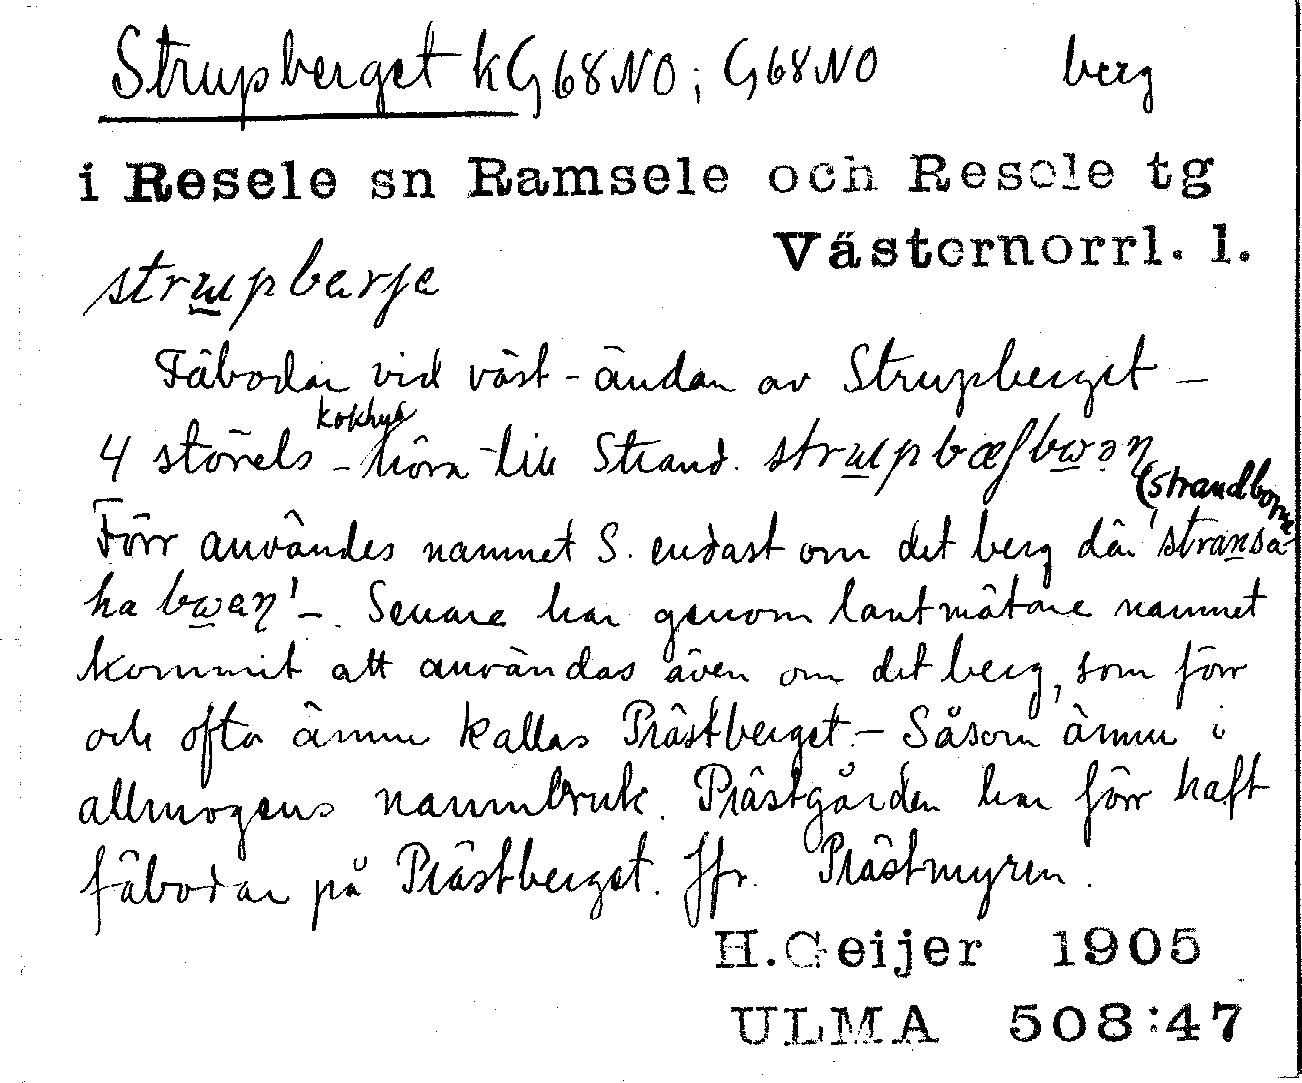 Strupberget kG68NO; G68NO berg
i Resele sn Ramsele och Resele tg
Västernorrl. l.
strupbærje
Fäbodar vid väst-ändan av Strupberget –
kokhus
4 störels – höra till Strand. strupbæʃbwan
(strandborna
Förr användes namnet S. endast om det berg där 'stransa
ha bwan' –. Senare har genom lantmätare namnet
kommit att användas även om det berg, som förr
och ofta ännu kallas Prästberget. – Såsom ännu i
allmogens namnbruk. Prästgården har förr haft
fäbodar på Prästberget. Jfr. Prästmyren.
H.Geijer 1905
ULMA 508:47